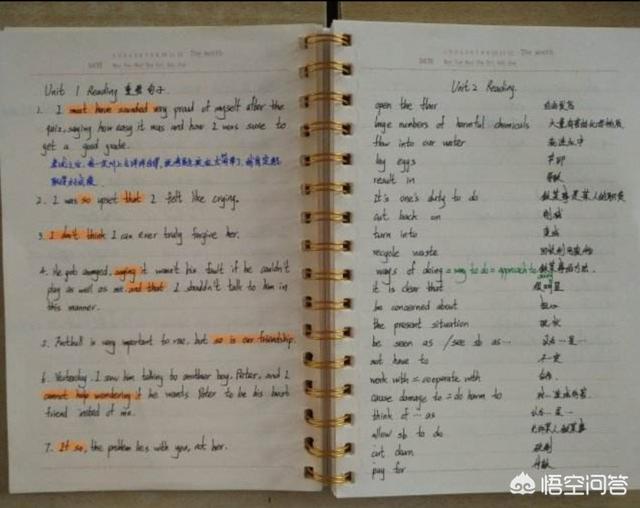 Unit 1 Reading 重要句子
1. I must have sounded very proud of myself after the
quiz, saying how easy it was and how I was sure to
get a good grade.
2. I was so upset that I felt like crying.
3. I don't think I can ever truly forgive her.
4. He got annoyed, saying it wasn't his fault if he couldn't
play as well as me and that I shouldn't talk to him in
this manner.
5. Football is very important to me, but so is our friendship.
6. Yesterday, I saw him talking to another boy, Peter, and I
cannot help wondering if he wants Peter to be his best
friend instead of me.
7. If so, the problem lies with you, not her.
DATE
Unit 2 Reading.
open the floor
large numbers of harmful chemicals 大量有害的化学物质
flow into our water
lay eggs 产卵
result in 导致
It's one's duty to do 做某事是某人的职责
cut back on 削减
turn into 变成
recycle waste
ways of doing = way to do = approach to doing 做某事的方法
it is clear that 很明显
be concerned about 担心
the present situation 现状
be seen as /see sb as... 认为…是…
not have to 不一定
work with = cooperate with 合作
cause damage to = do harm to 对…造成伤害
think of ... as 认为…是…
allow sb to do 允许某人做某事
cut down 砍倒
pay for
悟空问答